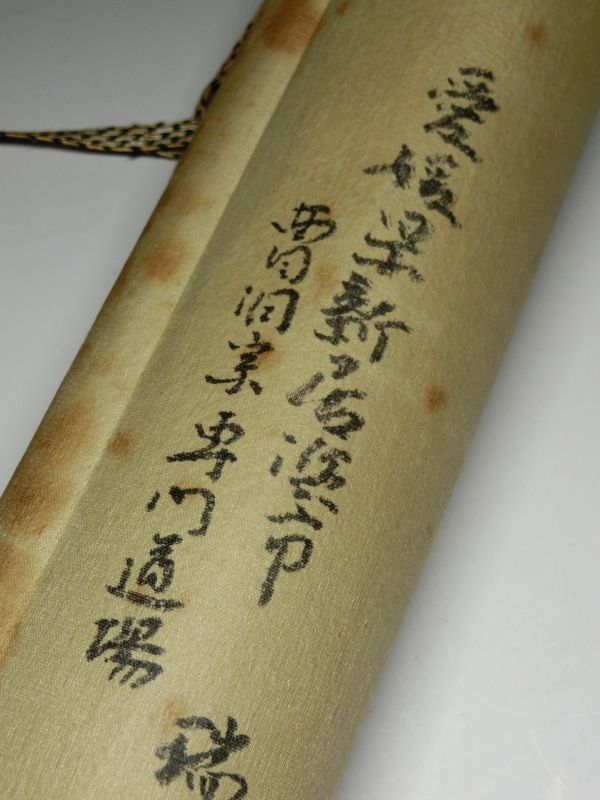 愛媛県新居浜市
曹洞宗専門道場
瑞